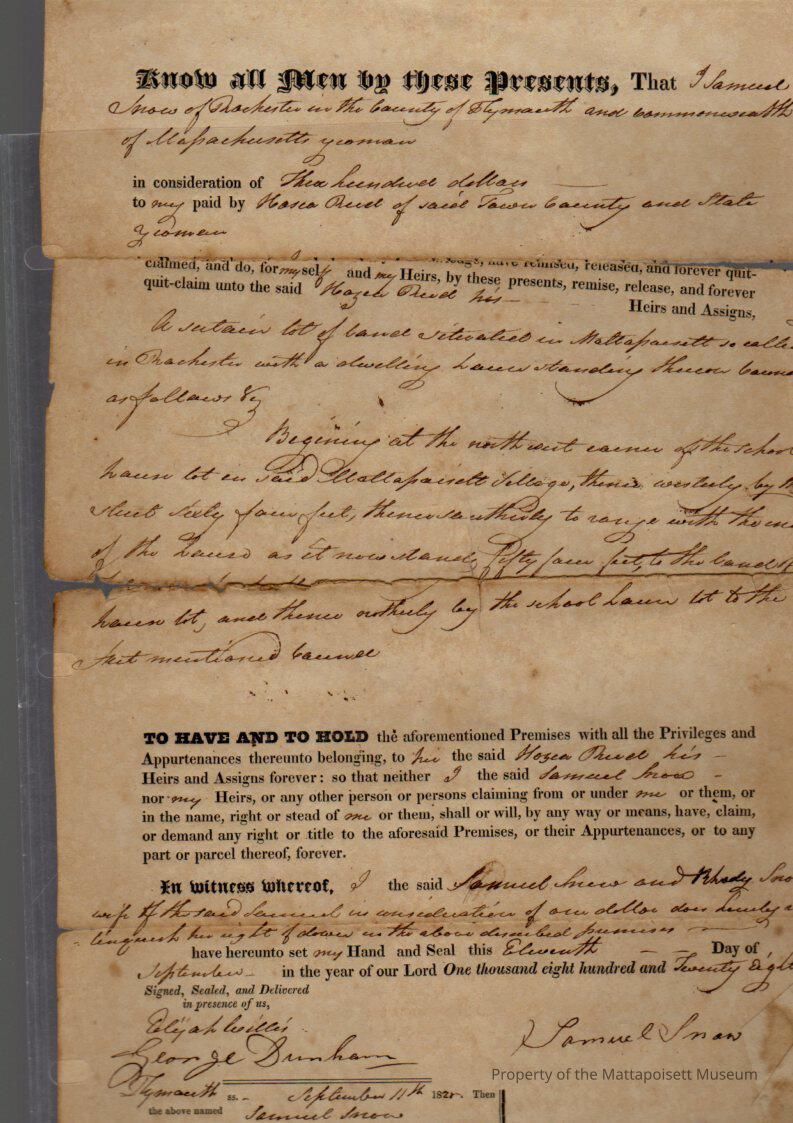 Know all Men by these Presents, That I Samuel
Snow of Rochester in the County of Plymouth and commonwealth
of Massachusetts yeoman
in consideration of Three hundred dollars
to my paid by Hosea Rued of said Town County and State
yeoman
have remised, released, and forever quit-
claimed, and do, for myself and my Heirs, by these presents, remise, release, and forever
quit-claim unto the said Hozea Rued his
Heirs and Assigns,
A certain lot of land situated in Mattapoisett so calle
in Rochester with a dwelling house standing thereon boun
as follows &
Begining at the north west corner of the school
house lot in said Mattapoisett Village, thence westerly by th
street sixty four feet, thence southerly to range with the
of the house as it now stands fifty four feet, to the land of
house lot, and thence northerly by the school house lot to the
first mentioned bound
TO HAVE AND TO HOLD the aforementioned Premises with all the Privileges and
Appurtenances thereunto belonging, to him the said Hozea Rued his
Heirs and Assigns forever: so that neither I the said Samuel Snow
nor my Heirs, or any other person or persons claiming from or under me or them, or
in the name, right or stead of me or them, shall or will, by any way or means, have, claim,
or demand any right or title to the aforesaid Premises, or their Appurtenances, or to any
part or parcel thereof, forever.
In witness whereof, I the said Samuel Snow and Rhody Sno
wife of the said Samuel in consideration of one dollar does hereby
linquish her right of dower in the above described premises
have hereunto set my Hand and Seal this Eleventh Day of
September in the year of our Lord One thousand eight hundred and Twenty Eight
Signed, Sealed, and Delivered
in presence of us,
Elijah Willis
George Dunham
Samuel Snow
Property of the Mattapoisett Museum
Plymouth ss. September 11th 182 Then
the above named Samuel Snow